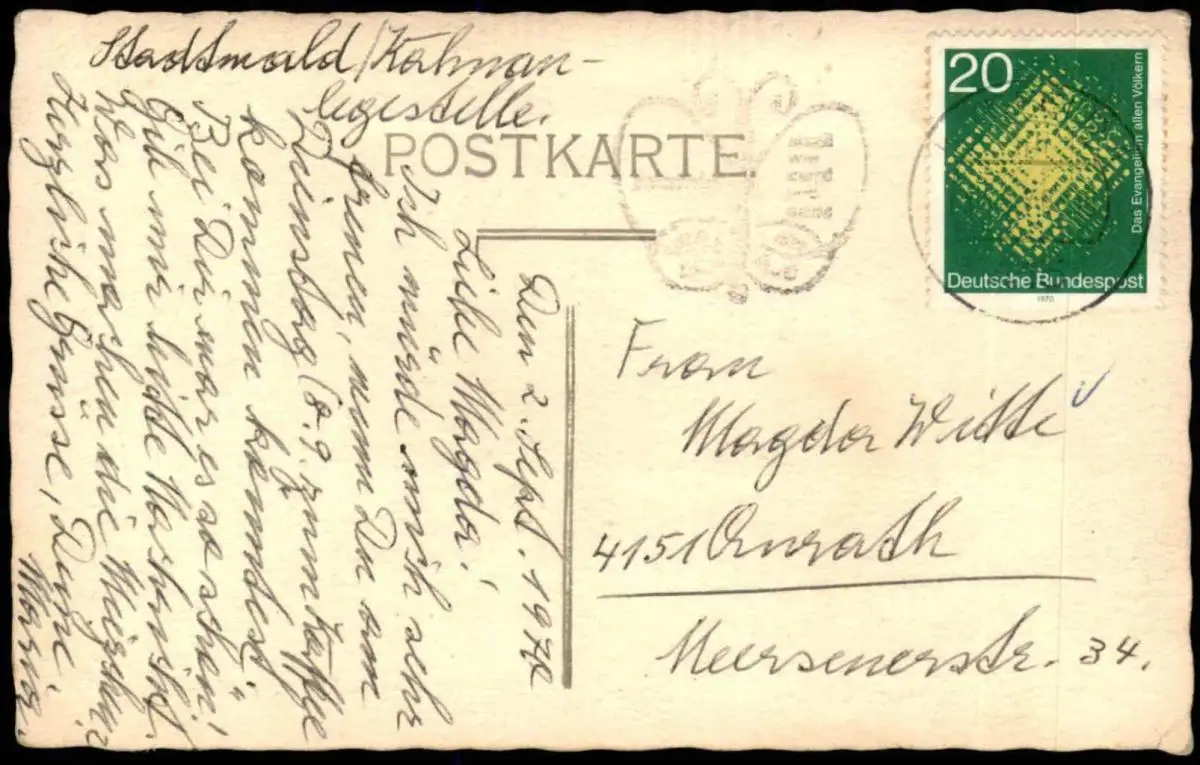 Stadtwald/Kahnan-
legestelle.
POSTKARTE
Den 2. Sept. 1970
Liebe Magda!
Ich würde mich sehr
freuen, wenn Du am
Dienstag (8.9. zum Kaffee
kommen könntest.
Bei Dir war es so schön!
Gib mir bitte Nachricht.
Was machen die
Herzliche Grüsse, Deine
Maria.
20
Das Evangelium allen Völkern
Deutsche Bundespost
1970
Frau
Magda Witte
4151 Anrath
Meersenerstr. 34.